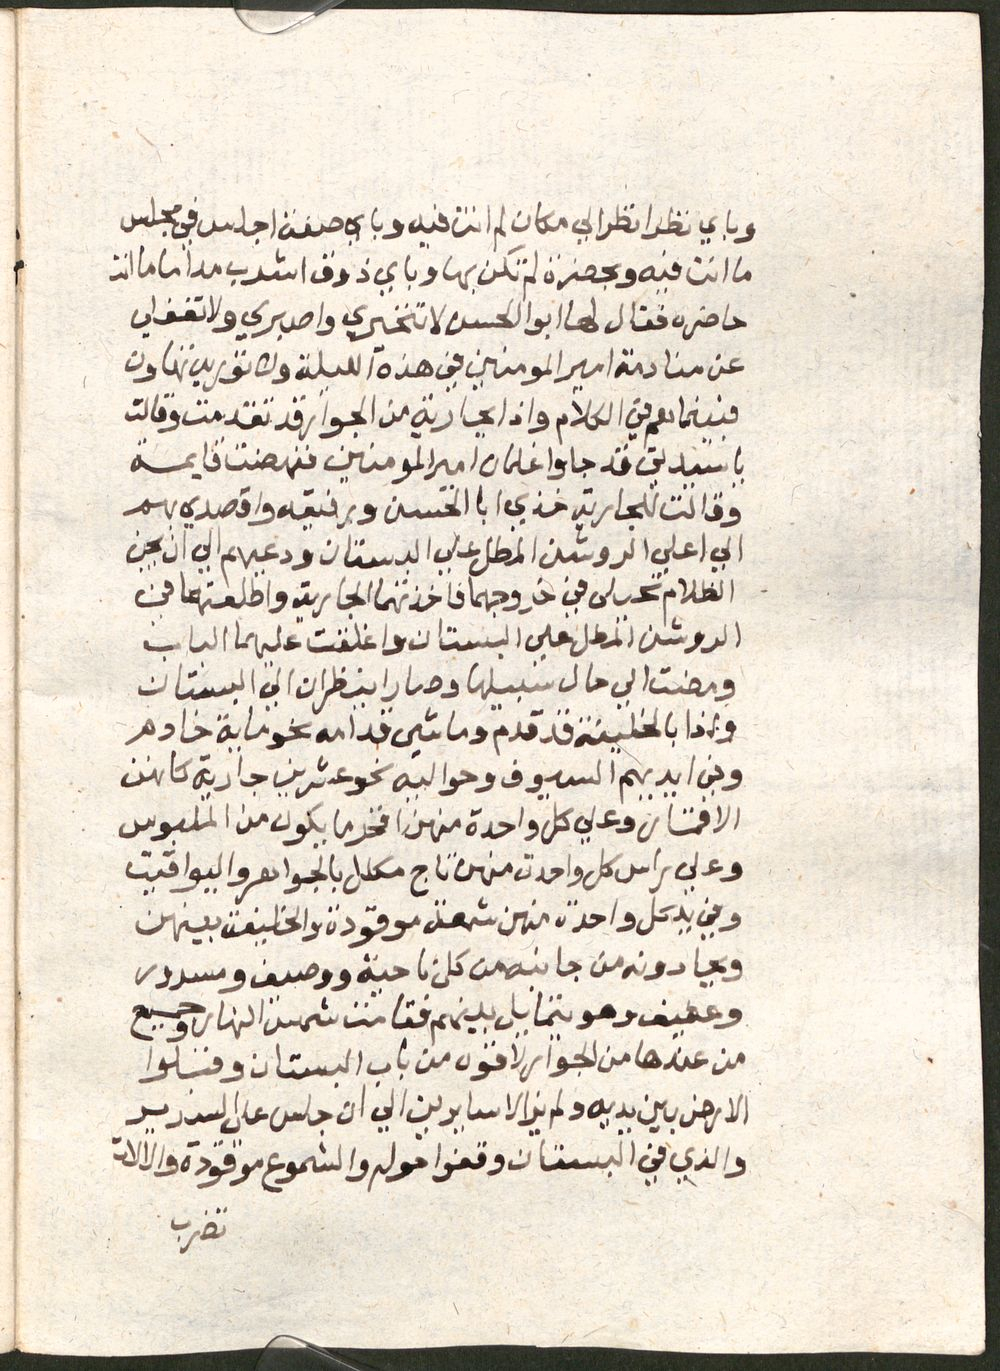 وباي نظر انظر الي مكان لم انت فيه وباي صفة اجلس في مجلس
ما انت فيه وبحضرة لم تكن بها وباي ذوق اشرب مداما ما انت
حاضره فقال لها ابو الحسن لا تتحيري واصبري ولا تغفلي
عن منادمة امير المومنين في هذه الليلة ولا توريه تهاون
فبينما هم في الكلام واذا بجارية من الجوار قد تقدمت وقالت
يا سيدتي قد جاوا غلمان امير المومنين فنهضت قايمة
وقالت للجارية خذي ابا الحسن ورفيقه واقصدي بهم
الي اعلي الروشن المطل علي البستان ودعيهم الي ان يجن
الظلام تحيلي في خروجهما فاخذتهما الجارية واطلعتهما في
الروشن المطل علي البستان واغلقت عليهما الباب
ومضت الي حال سبيلها وصارا ينظران الي البستان
واذا بالخليفة قد قدم وماشي قدامه نحو ماية خادم
وفي ايديهم السيوف وحواليه نحو عشرين جارية كانهن
الاقمار وعلي كل واحدة منهن افخر ما يكون من الملبوس
وعلي راس كل واحدة منهن تاج مكلل بالجواهر واليواقيت
وفي يد كل واحدة منهن شمعة موقودة والخليفة بينهن
ويحيا دونه من جانبه من كل ناحية ووصيف ومسرور
وعفيف وهو يتمايل بينهم فقامت شمس النهار وجميع
من عندها من الجوار لاقوه من باب البستان وقبلوا
الارض بين يديه ولم يزالا سايرين الي ان جلس علي السرير
والذي في البستان وقفوا حوله والشموع موقودة والالات
تضرب